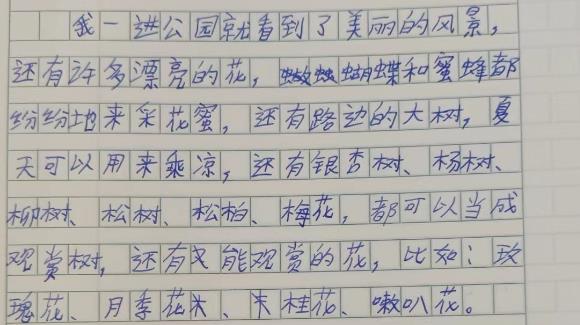 我一进公园就看到了美丽的风景，
还有许多漂亮的花，蝴蝶和蜜蜂都
纷纷地来采花蜜，还有路边的大树，夏
天可以用来乘凉，还有银杏树、杨树、
柳树、松树、松柏、梅花，都可以当成
观赏树，还有又能观赏的花，比如：玫
瑰花、月季花、桂花、喇叭花。